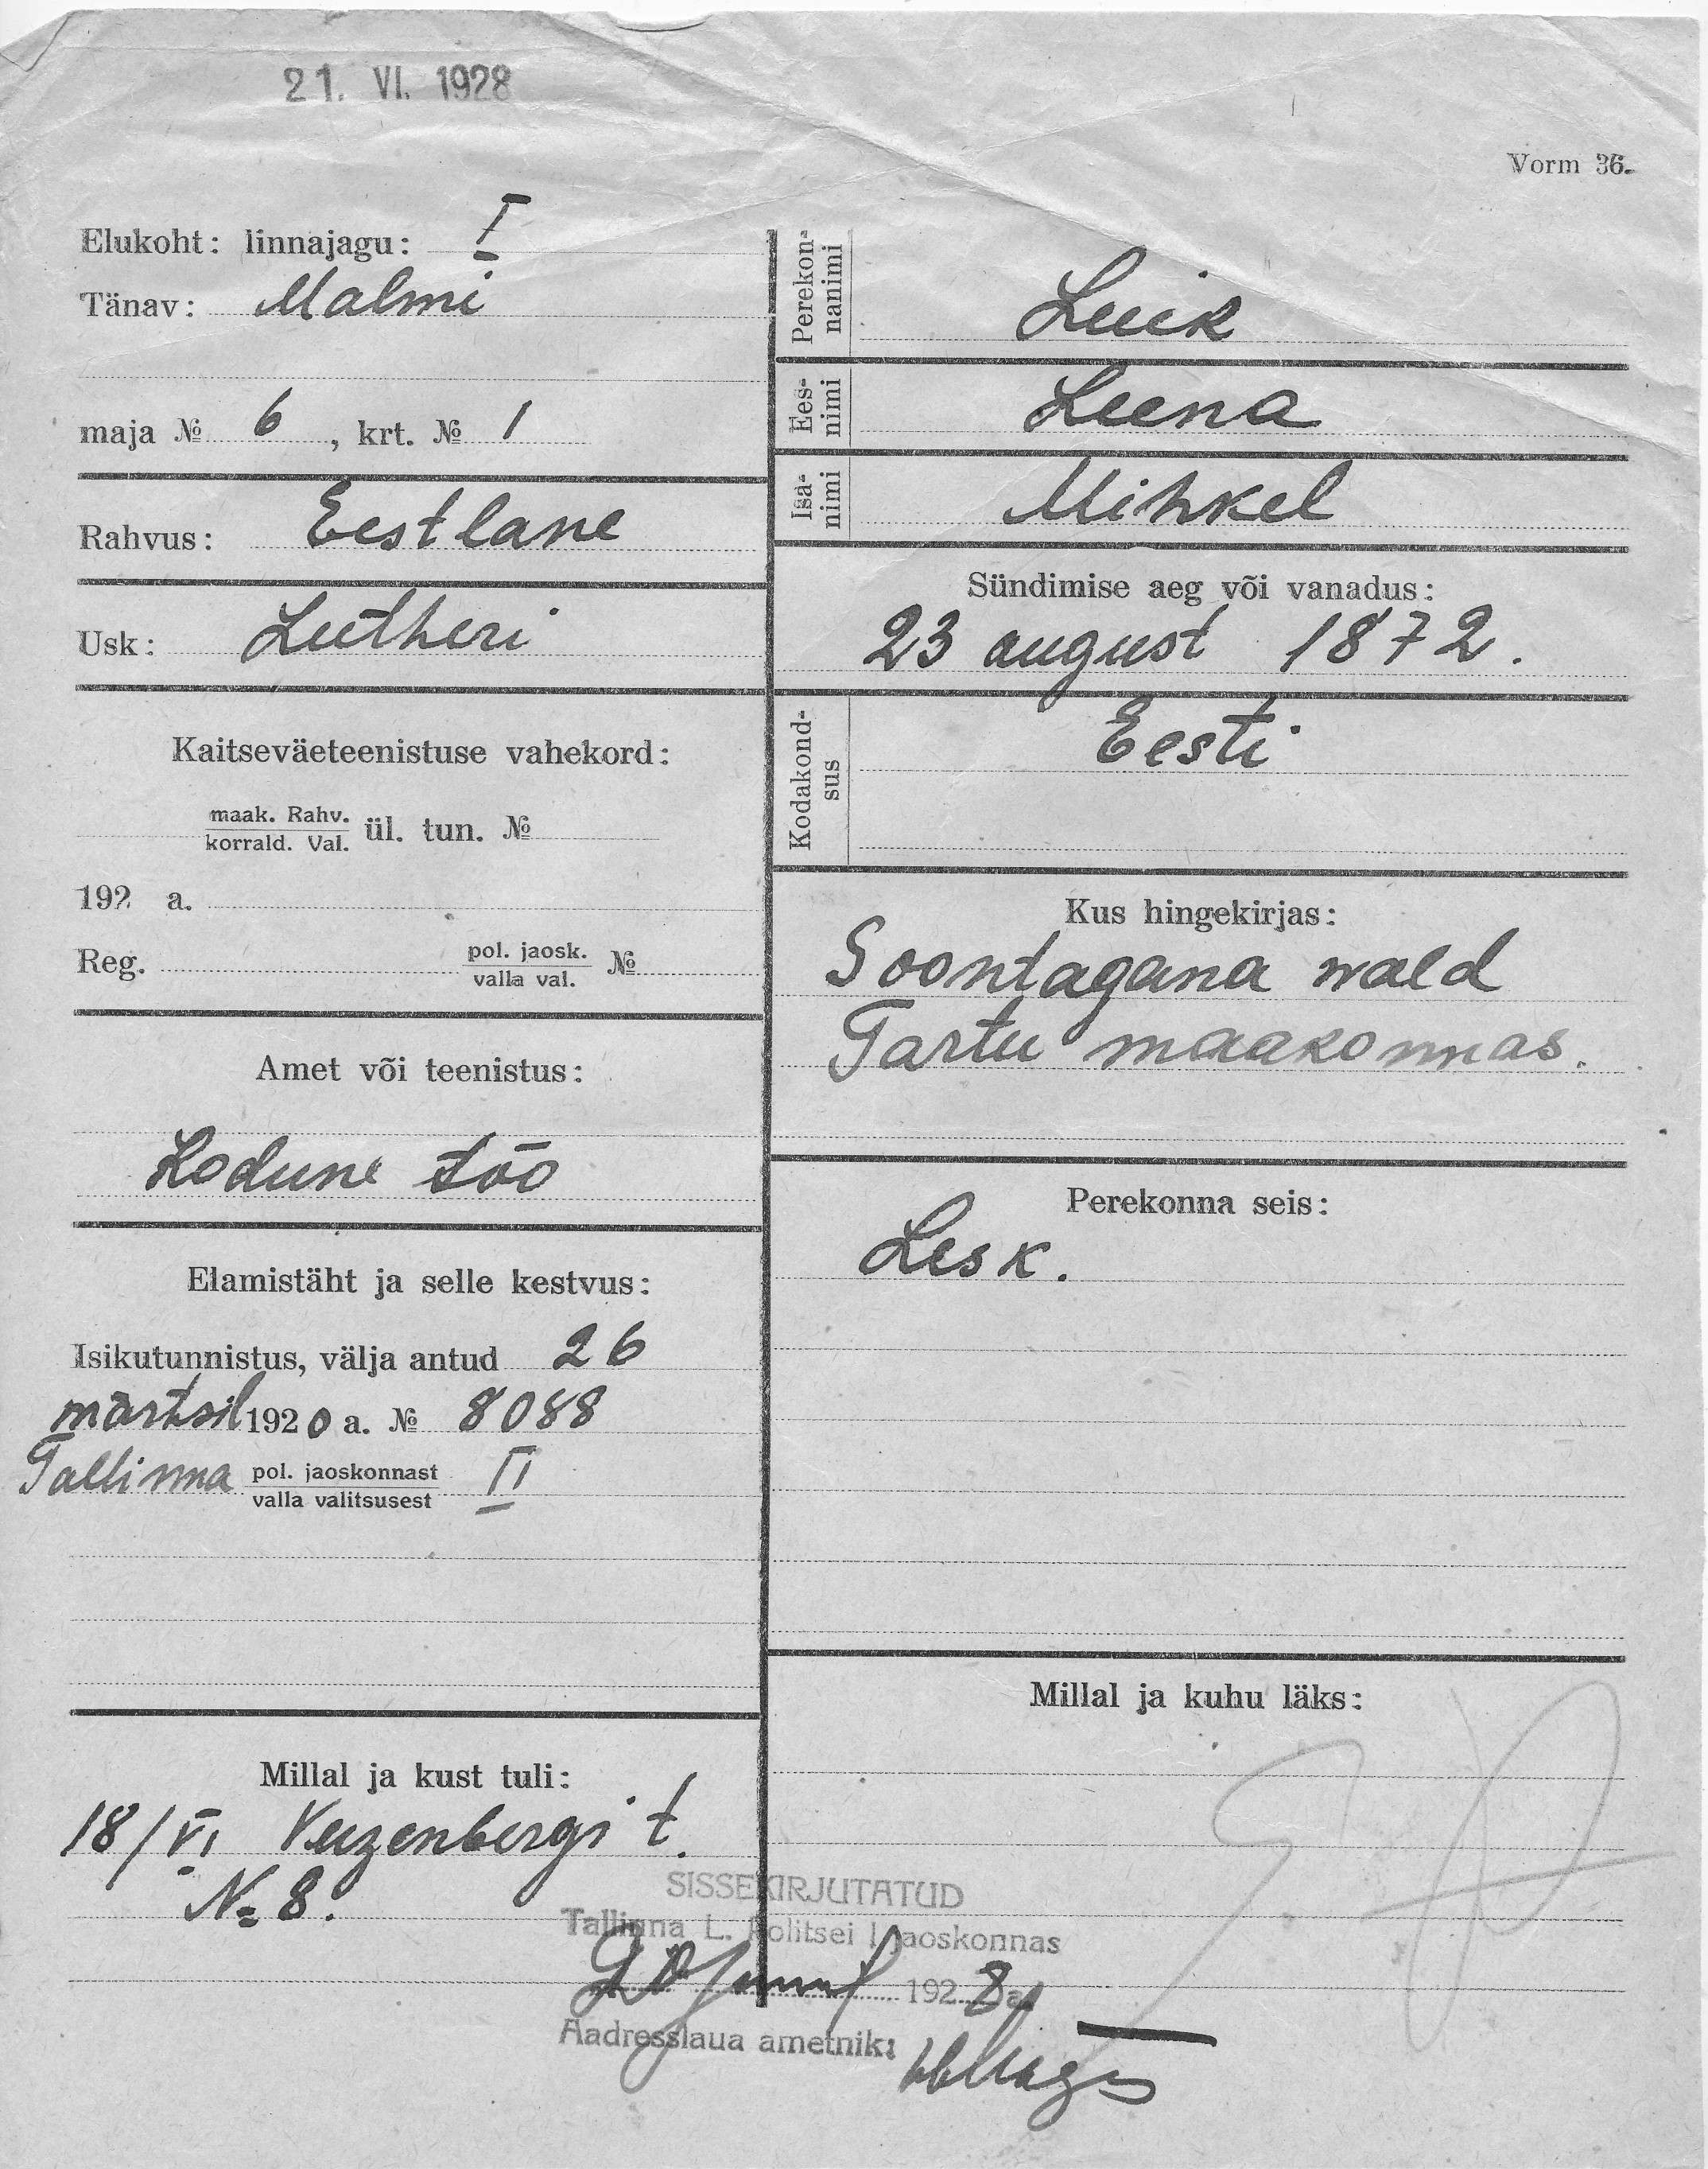 21. VI. 1928
Vorm 36.
Elukoht: linnajagu: I
Tänav: Malmi
maja № 6, krt. № 1
Rahvus: Eestlane
Usk: Lutheri
Kaitseväeteenistuse vahekord:
maak. Rahv.
korrald. Val. ül. tun. №
192 a.
Reg. pol. jaosk. №
valla val.
Amet või teenistus:
Kodune töö
Elamistäht ja selle kestvus:
Isikutunnistus, välja antud 26
märtsil 1920 a. № 8088
Tallinna pol. jaoskonnast II
valla valitsusest
Millal ja kust tuli:
18/VI Veizenbergi t.
№ 8.
Perekon-
nanimi
Luik
Ees-
nimi
Leena
Isa-
nimi
Mihkel
Sündimise aeg või vanadus:
23 august 1872.
Kodakond-
sus
Eesti
Kus hingekirjas:
Soontagana wald
Tartu maakonnas.
Perekonna seis:
Lesk.
Millal ja kuhu läks:
SISSEKIRJUTATUD
Tallinna L. Politsei I jaoskonnas
1928 a.
Aadresslaua ametnik: